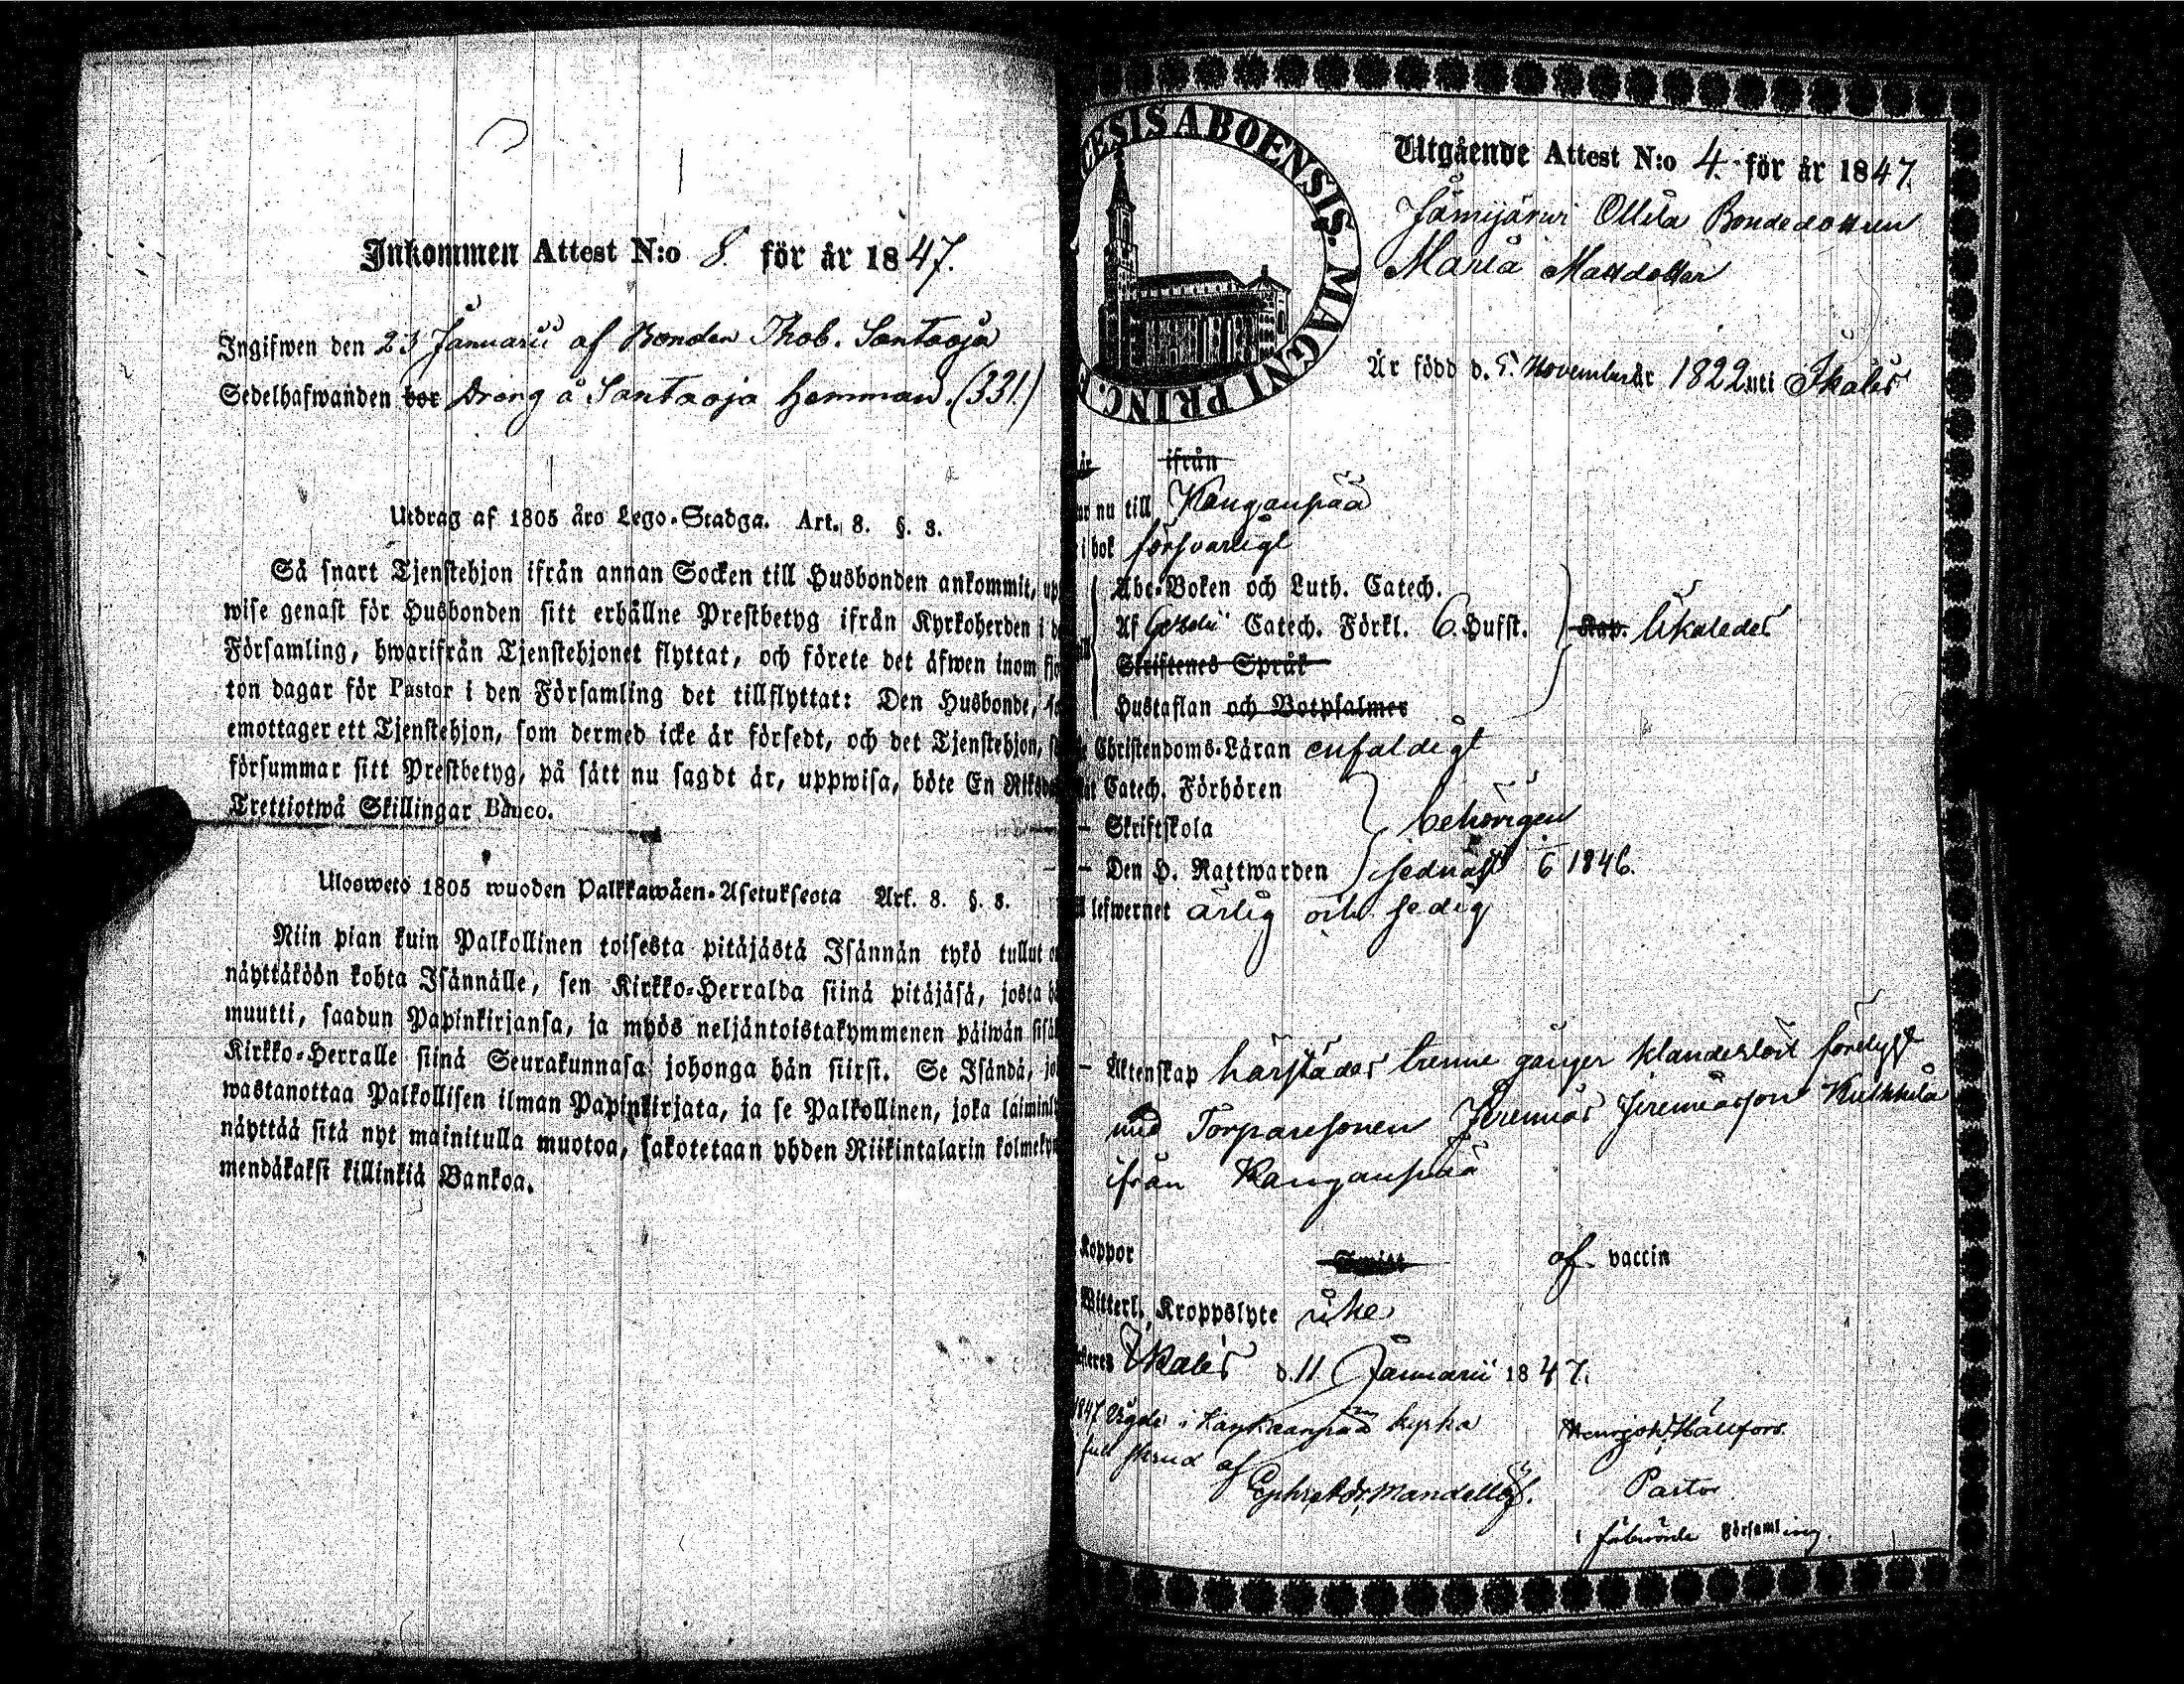 Inkommen Attest N:o 8. för år 1847.
Ingifwen den 23 Januarii af Bonden Thob. Santaoja
Sedelhafwanden bor Dräng å Santaoja hemman. (331.)
Utdrag af 1805 års Lego-Stadga. Art. 8. §. 3.
Så snart Tjenstehjon ifrån annan Socken till Husbonden ankommit, up
wise genast för Husbonden sitt erhållne Prestbetyg ifrån Kyrkoherden i d
Församling, hwarifrån Tjenstehjonet flyttat, och förete det äfwen inom fjo
ton dagar för Pastor i den Församling det tillflyttat: Den Husbonde, s
emottager ett Tjenstehjon, som dermed icke är försedt, och det Tjenstehjon, s
försummar sitt Prestbetyg, på sätt nu sagdt är, uppwisa, böte En Riksda
Trettiotwå Skillingar Banco.
Ulosweto 1805 wuoden Palkkawäen-Asetuksesta Art. 8. §. 3.
Niin pian kuin Palkollinen toisesta pitäjästä Isännän tykö tullut o
näyttäköön kohta Isännälle, sen Kirkko-Herralda siinä pitäjäsä, josta h
muutti, saadun Papinkirjansa, ja myös neljäntoistakymmenen päiwän sisäl
Kirkko-Herralle siinä Seurakunnasa johonga hän siirsi. Se Isändä, jo
wastanottaa Palkollisen ilman Papinkirjata, ja se Palkollinen, joka laiminly
näyttää sitä nyt mainitulla muotoa, sakotetaan yhden Riikintalarin kolmeky
mendäkaksi killinkiä Bankoa.
CESIS ABOENSIS. MAGNI PRINC. F
Utgående Attest N:o 4. för år 1847.
Jämijärwi Ollila Bondedottren
Maria Mattsdotter
Är född d. 5. November år 1822 uti Ikalis
år ifrån
ar nu till Kanganpää
i bok försvarligt
Abc-Boken och Luth. Catech.
Af Gezelii Catech. Förkl. 6. Hufst. Kap. Ukaledes
Skriftenes Språk
Hustaflan och Botpsalmer
Christendoms-Läran enfaldigt
at Catech. Förhören
– Skriftskola behörigen
– Den H. Nattwarden sednast 6 1846.
lefwernet ärlig och sedig
– Äktenskap härstädes trenne gånger klanderlöst förelyst
med Torparesonen Jeremias Jeremiasson Kuhkkila
ifrån Kanganpää
Koppor af vaccin
Witterl. Kroppslyte icke
Ikalis d. 11 Januarii 1847.
1847 Vigde i Kankaanpää kyrka
full skrud af
Henrik Hällfors.
Mandellöf.
Pastor
i Församling.